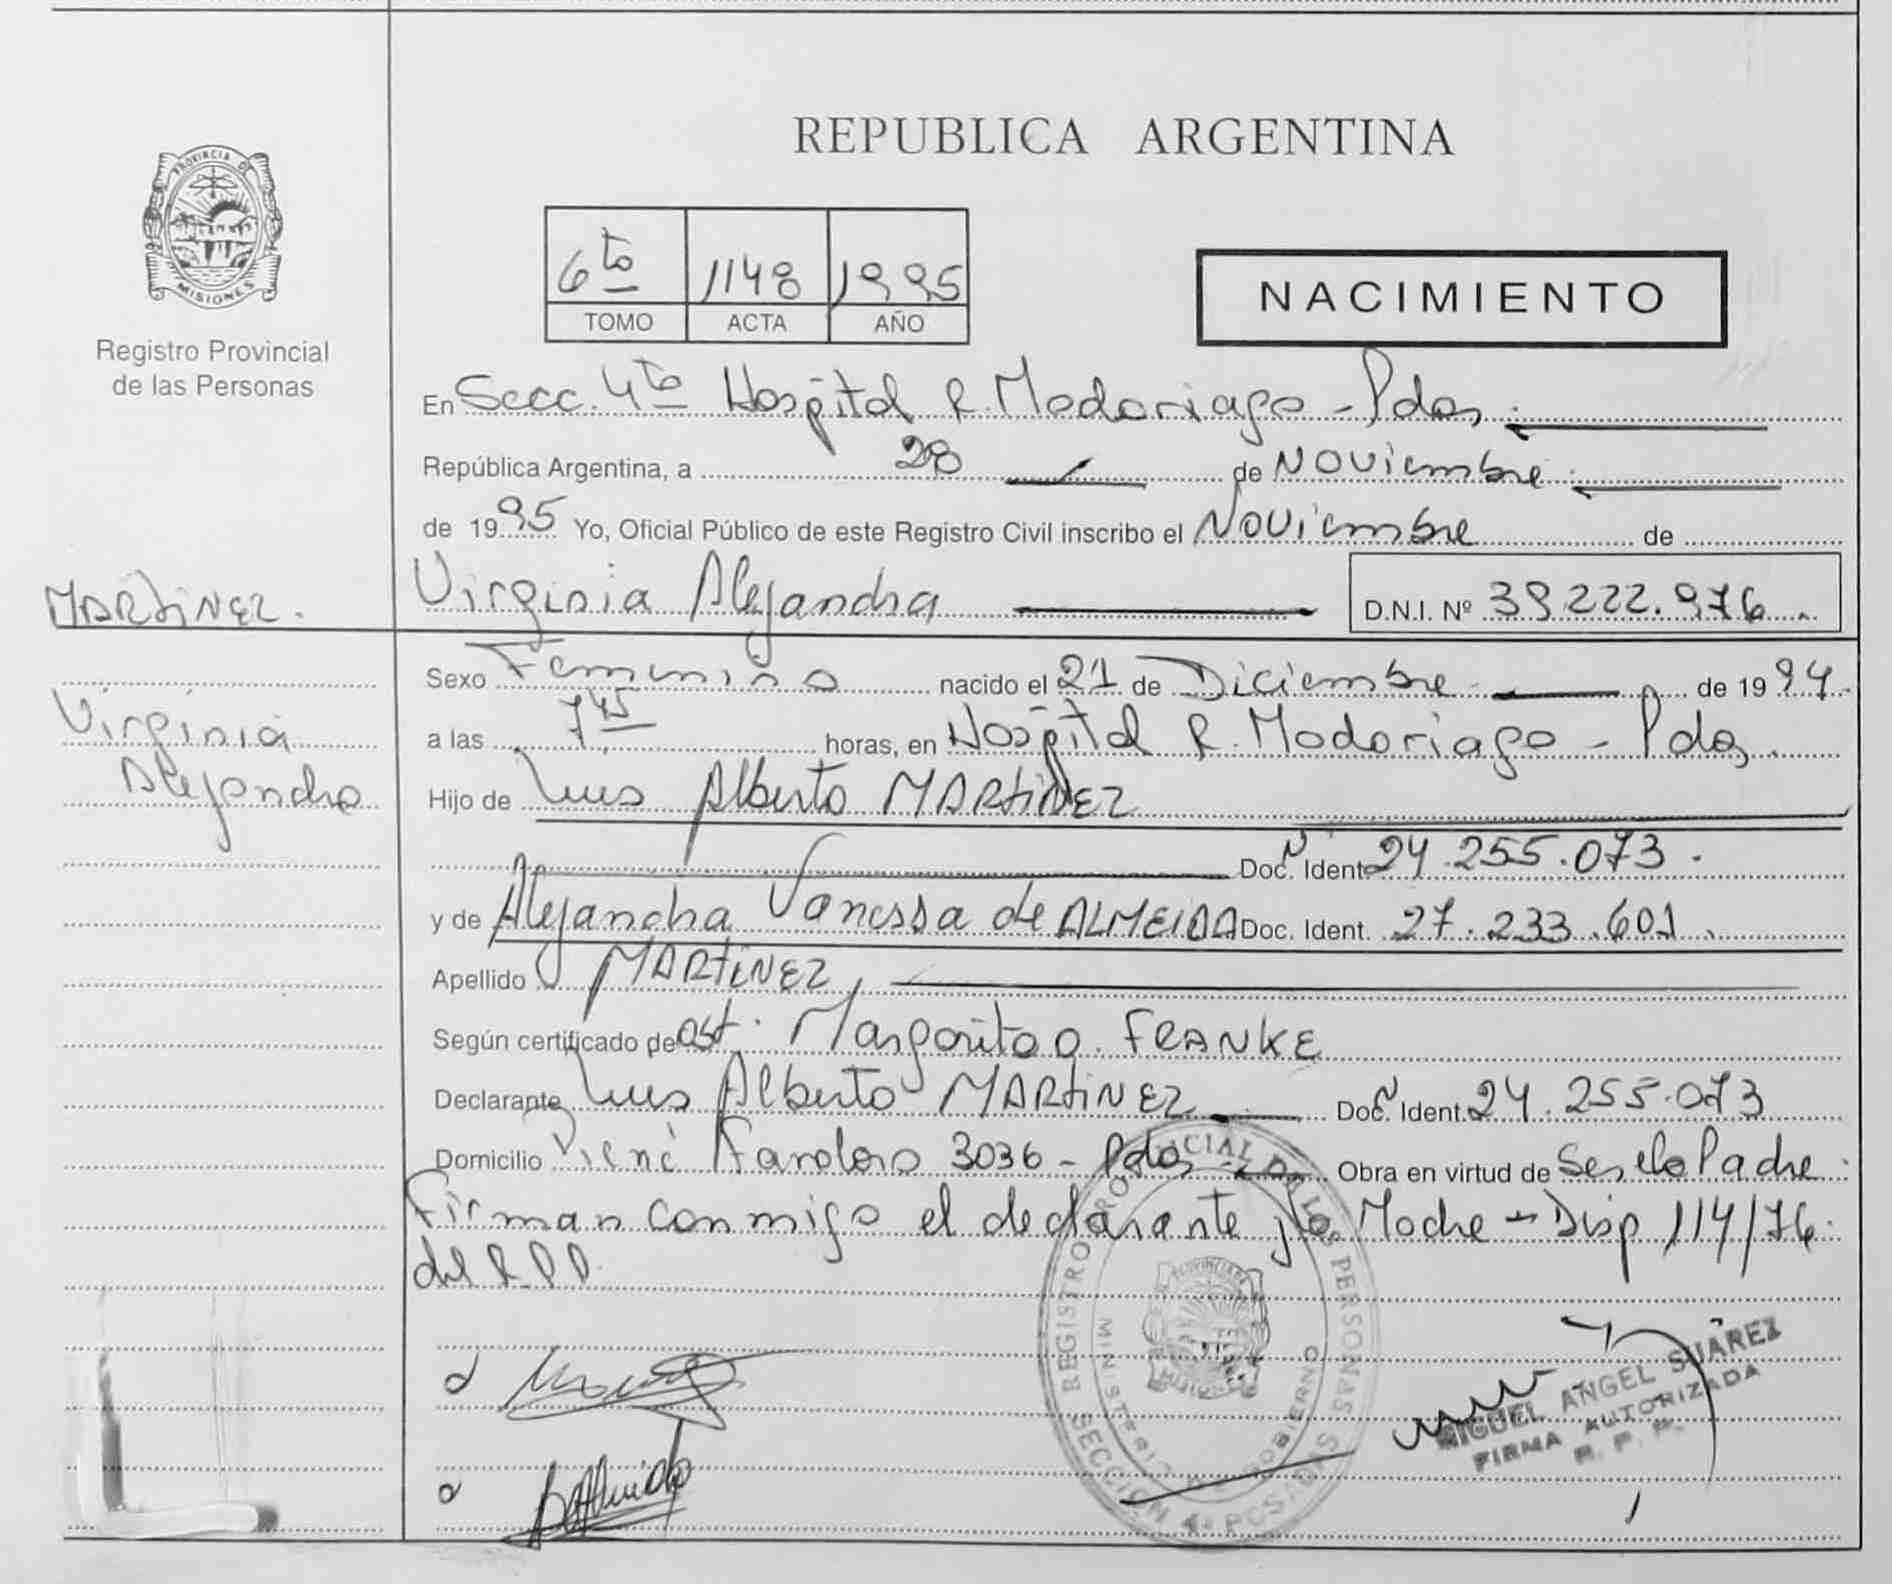 PROVINCIA DE
MISIONES
Registro Provincial
de las Personas
REPUBLICA ARGENTINA
6to 1148 1995
TOMO ACTA AÑO
NACIMIENTO
En Secc. 4ta Hospital R. Madariaga - Pdas
República Argentina, a 28 de Noviembre
de 1995 Yo, Oficial Público de este Registro Civil inscribo el Noviembre de
MARTINEZ.
Virginia Alejandra D.N.I. Nº 39.222.976.
Sexo Femenino nacido el 21 de Diciembre de 1994.
Virginia
Alejandra
a las 7,45 horas, en Hospital R. Madariaga - Pdas.
Hijo de Luis Alberto MARTINEZ
Doc. Ident. 24.255.073.
y de Alejandra Vanessa de ALMEIDA Doc. Ident. 27.233.601.
Apellido MARTINEZ
Según certificado de Ost. Margarita O. FRANKE
Declarante Luis Alberto MARTINEZ Doc. Ident. 24.255.073
Domicilio 3036 - Pdas Obra en virtud de Ser el Padre
Firman conmigo el declarante y la Madre - Disp 114/76.
del R.P.P.
REGISTRO PROVINCIAL DE LAS PERSONAS
MINISTERIO DE GOBIERNO
SECCION 4ª POSADAS
MIGUEL ANGEL SUAREZ
FIRMA AUTORIZADA
R. P. P.